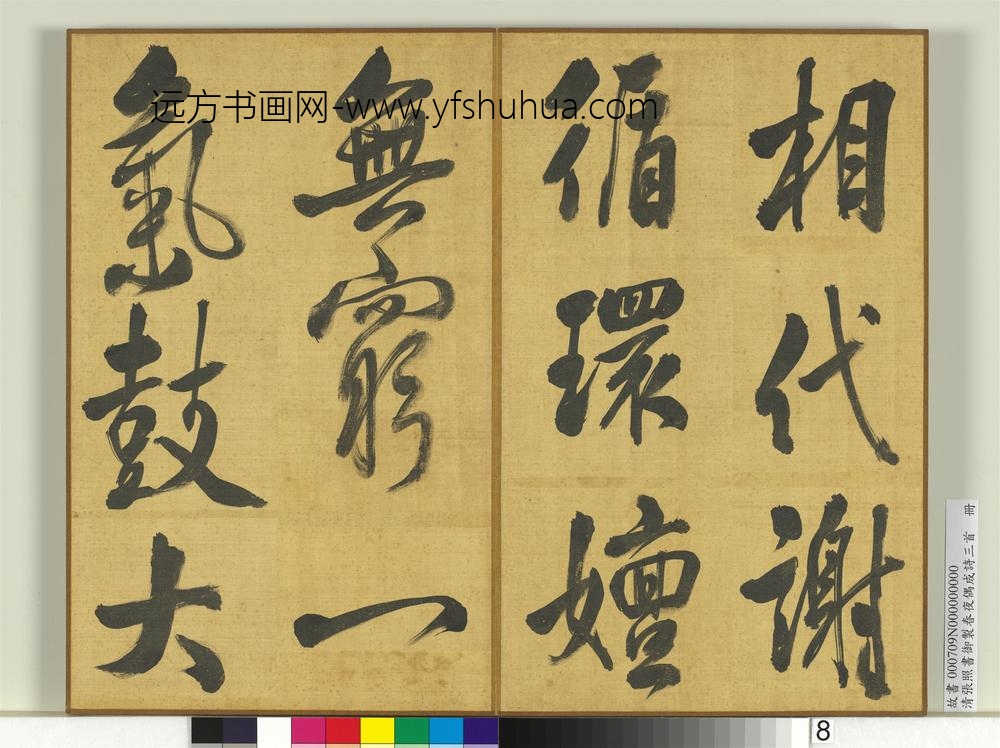 相代謝
循環嬗
無窮一
氣鼓大
远方书画网-www.yfshuhua.com
故書 000709N000000000
清張照書御製春夜偶成詩三首 冊
8